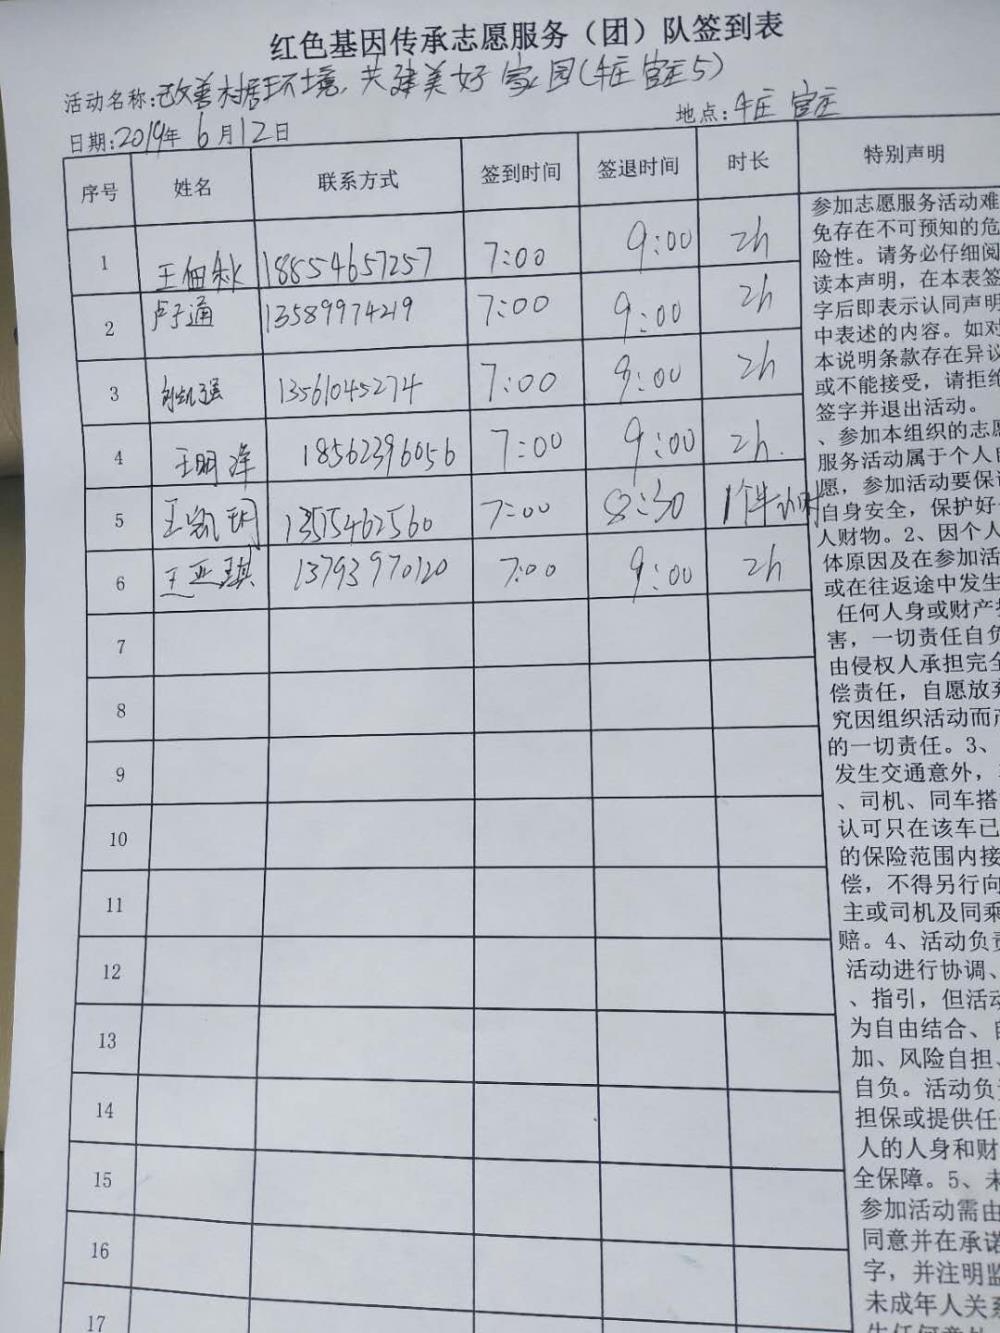 红色基因传承志愿服务（团）队签到表
活动名称:改善村居环境,共建美好家园(牛庄官庄5)
日期:2019年6月12日 地点:牛庄 官庄
序号 姓名 联系方式 签到时间 签退时间 时长 特别声明
1 王佃秋 18854657257 7:00 9:00 2h
2 卢子通 13589974219 7:00 9:00 2h
3 刘凯强 13561045274 7:00 9:00 2h
4 王明洋 18562396056 7:00 9:00 2h.
5 王凯玥 13515462560 7:00 8:30 1个半小时
6 王亚琪 13793970120 7:00 9:00 2h
7
8
9
10
11
12
13
14
15
16
17
参加志愿服务活动难
免存在不可预知的危
险性。请务必仔细阅
读本声明，在本表签
字后即表示认同声明
中表述的内容。如对
本说明条款存在异议
或不能接受，请拒绝
签字并退出活动。
、参加本组织的志愿
服务活动属于个人自
愿，参加活动要保证
自身安全，保护好
人财物。2、因个人
体原因及在参加活
或在往返途中发生
任何人身或财产
害，一切责任自负
由侵权人承担完全
偿责任，自愿放弃
究因组织活动而产
的一切责任。3、
发生交通意外，
、司机、同车搭
认可只在该车已
的保险范围内接
偿，不得另行向
主或司机及同乘
赔。4、活动负责
活动进行协调、
、指引，但活动
为自由结合、自
加、风险自担、
自负。活动负责
担保或提供任
人的人身和财
全保障。5、未
参加活动需由
同意并在承诺
字，并注明监
未成年人关系